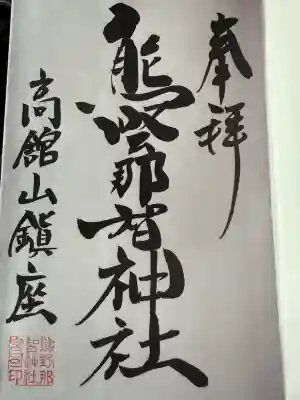 奉拝
熊野那智神社
高館山鎭座
熊野那
智神社
印